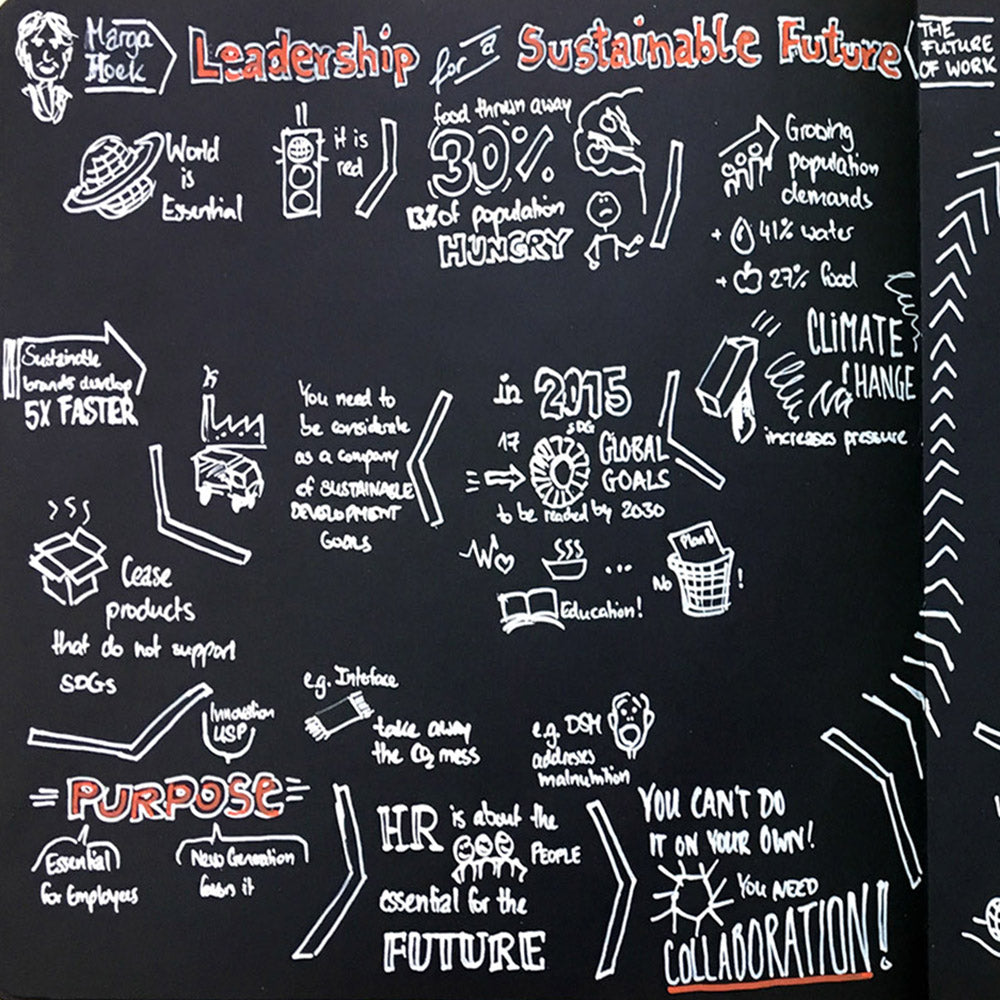 Marga
Hoek
Leadership for a Sustainable Future
THE
FUTURE
OF WORK
World
is
Essential
it is
red
food thrown away
30%
13% of population
HUNGRY
Growing
population
demands
+ 41% water
+ 27% food
CLIMATE
CHANGE
increases pressure
in 2015
SDG
17
GLOBAL
GOALS
to be reached by 2030
...
Education!
Plan B
No !
You need to
be considerate
as a company
of SUSTAINABLE
DEVELOPMENT
GOALS
Sustainable
brands develop
5X FASTER
Cease
products
that do not support
SDGs
Innovation
USP
e.g. Interface
take away
the CO2 mess
e.g. DSM
addresses
malnutrition
= PURPOSE =
Essential
for Employees
New Generation
HR is about the
PEOPLE
essential for the
FUTURE
YOU CAN'T DO
IT ON YOUR OWN!
YOU NEED
COLLABORATION!